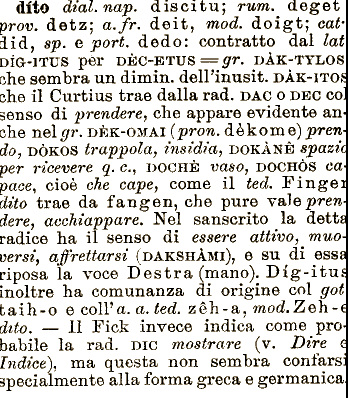 díto dial. nap. discitu; rum. deget
prov. detz; a. fr. deit, mod. doigt; cat.
did, sp. e port. dedo: contratto dal lat
DÍG-ITUS per DÈC-ETUS = gr. DÀK-TYLOS
che sembra un dimin. dell'inusit. DÀK-ITOS
che il Curtius trae dalla rad. DAC o DEC col
senso di prendere, che appare evidente an-
che nel gr. DÈK-OMAI (pron. dèkome) pren-
do, DÒKOS trappola, insidia, DOKÀNÈ spazio
per ricevere q. c., DOCHÈ vaso, DOCHÒS ca-
pace, cioè che cape, come il ted. Finger
dito trae da fangen, che pure vale pren-
dere, acchiappare. Nel sanscrito la detta
radice ha il senso di essere attivo, muo-
versi, affrettarsi (DAKSHÂMI), e su di essa
riposa la voce Destra (mano). Díg-itus
inoltre ha comunanza di origine col got
taih-o e coll'a. a. ted. zêh-a, mod. Zeh-e
dito. — Il Fick invece indica come pro-
babile la rad. DIC mostrare (v. Dire e
Indice), ma questa non sembra confarsi
specialmente alla forma greca e germanica.